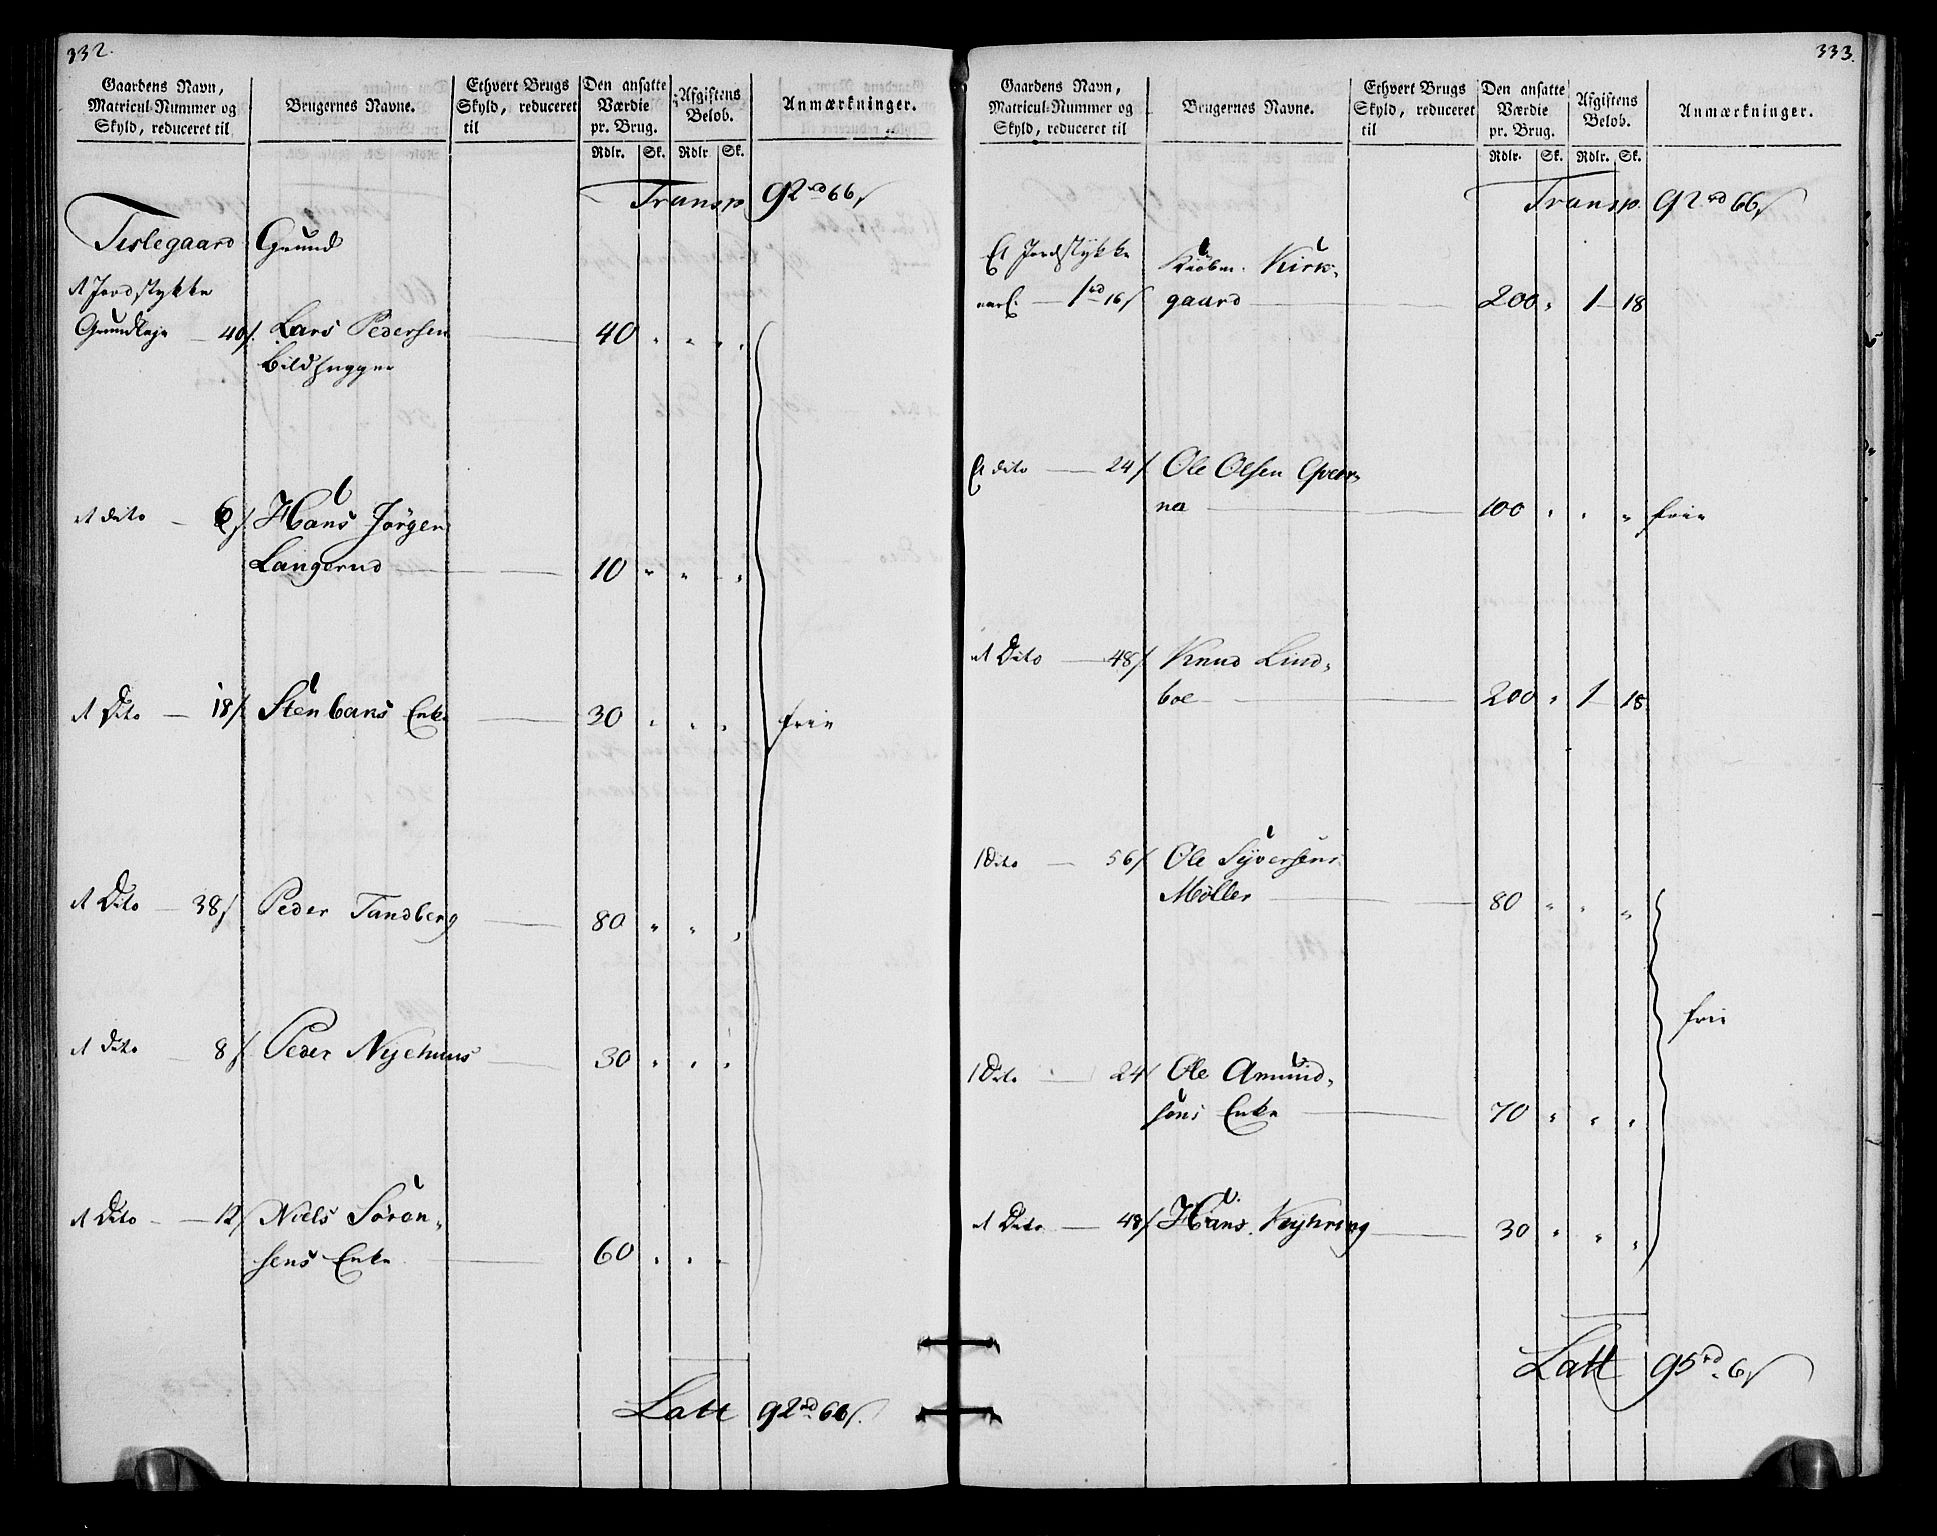 332.
Gaardens Navn, Matricul-Nummer og Skyld, reduceret til
Brugernes Navne.
Ethvert Brugs Skyld, reduceret til
Den ansatte Værdie pr. Brug.
Afgiftens Belob.
Anmærkninger.
Rdlr. Sk. Rdlr. Sk.
Transp. 92 rd 66 s
Tislegaard Grund
1 Jordstykke
Grundleje 40 s. Lars Pedersen 40 " " " "
Bildhugger
1 dito 6 s. Hans Jörgen
Langerud 10 " " " "
1 Dito 18 s. Stenbans Enke 30 " " " " frie
1 Dito 38 s Peder Tandberg 80 " " " "
1 dito 8 s. Peder Nyehuus 30 " " " "
1 Dito 12 s Niels Sören-
sens Enke 60 " " "
Latt 92 rd 66 s.
333.
Gaardens Navn, Matricul-Nummer og Skyld, reduceret til
Brugernes Navne.
Ethvert Brugs Skyld, reduceret til
Den ansatte Værdie pr. Brug.
Afgiftens Belob.
Anmærkninger.
Rdlr. Sk. Rdlr. Sk.
Transp. 92 rd 66 s
Et Jordstykke Kiöbm. Kirke-
1 rd 16 s gaard 200 " 1 18
Et dito 24 s Ole Olsen
100 " " " frie
1 Dito 48 s Knud Lind-
boe 200 " 1 18
1 Dito 56 s Ole Syversens
Möller 80 " " "
frie
1 Dito 24 s Ole Amund-
sens Enke 70 " " "
1 Dito 48 s Hans 30 " " "
Latt 95 rd 6 s